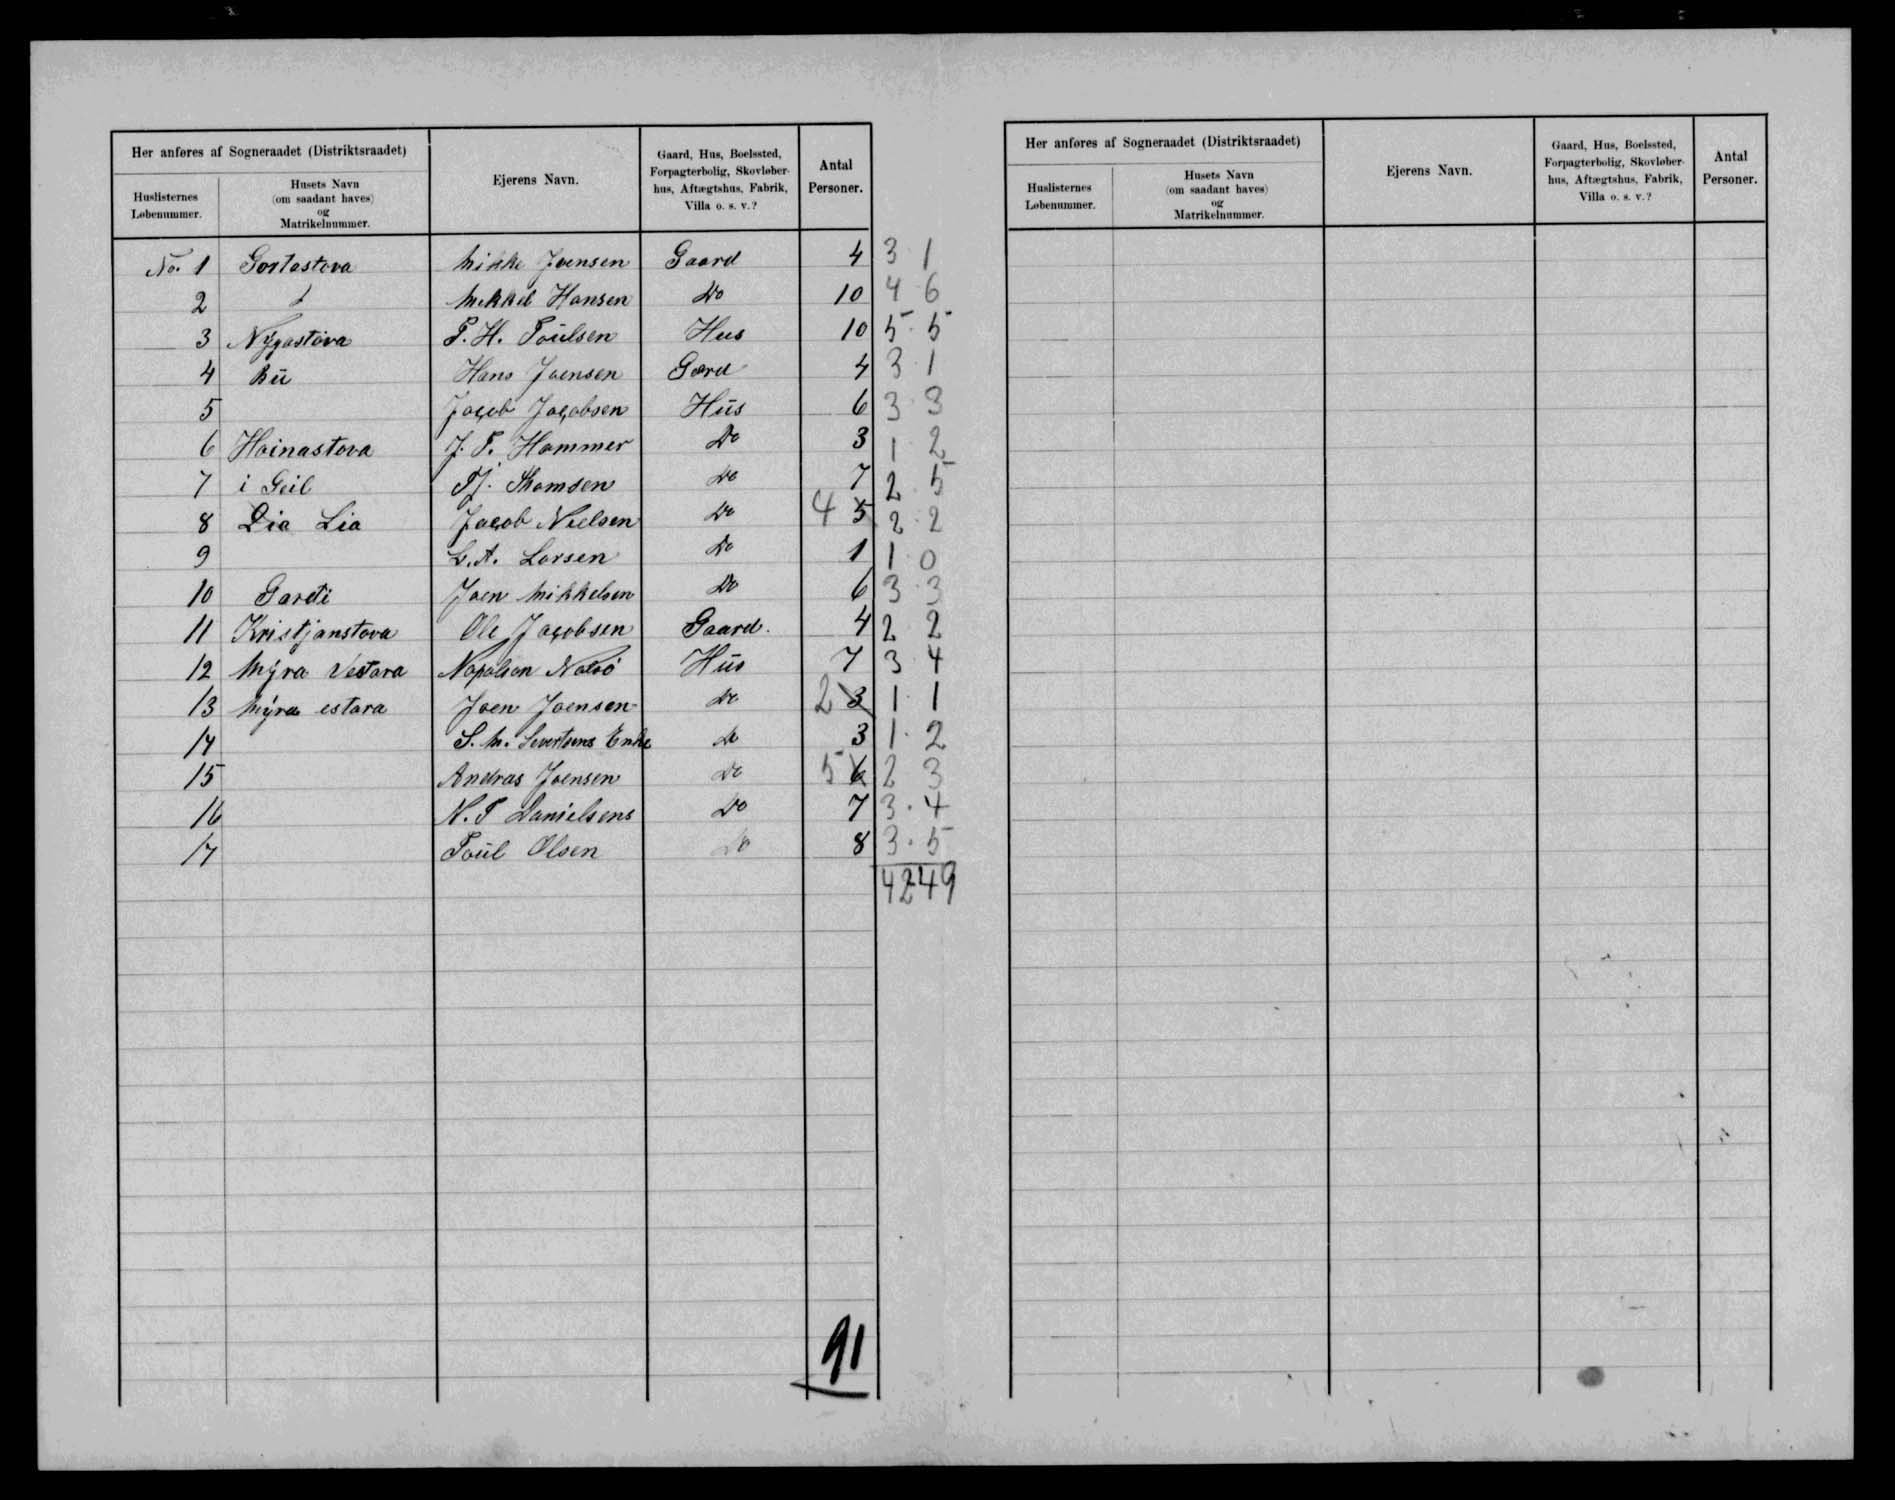 Her anføres af Sogneraadet (Distriktsraadet)
Huslisternes Løbenummer.
Husets Navn (om saadant haves) og Matrikelnummer.
Ejerens Navn.
Gaard, Hus, Boelssted, Forpagterbolig, Skovløberhus, Aftægtshus, Fabrik, Villa o. s. v.?
Antal Personer.
No. 1 Gortastova Mikke Joensen Gaard 4 3 1
2 Mikkel Hansen Do 10 4 6
3 Nygastova P. H. Poulsen Hus 10 5 5
4 Bü Hans Joensen Gard 4 3 1
5 Jacob Jacobsen Hus 6 3 3
6 Hoinastova J. P. Hammer Do 3 1 2
7 i Geil Thomsen Do 7 2 5
8 Dia Lia Jacob Nielsen Do 4 5 2 2
9 Larsen Do 1 1 0
10 Gardi Joen Mikkelsen Do 6 3 3
11 Kristjanstova Ole Jacobsen Gaard. 4 2 2
12 Mýra Vestara Napolion Nolsö Hus 7 3 4
13 Mýra estara Joen Joensen Do 2 3 1 1
14 S. M. Sivertsens Enke Do 3 1 2
15 Andras Joensen Do 5 6 2 3
16 N. P Danielsens Do 7 3 4
17 Poul Olsen Do 8 3 5
42 49
91
Her anføres af Sogneraadet (Distriktsraadet)
Huslisternes Løbenummer.
Husets Navn (om saadant haves) og Matrikelnummer.
Ejerens Navn.
Gaard, Hus, Boelssted, Forpagterbolig, Skovløberhus, Aftægtshus, Fabrik, Villa o. s. v.?
Antal Personer.